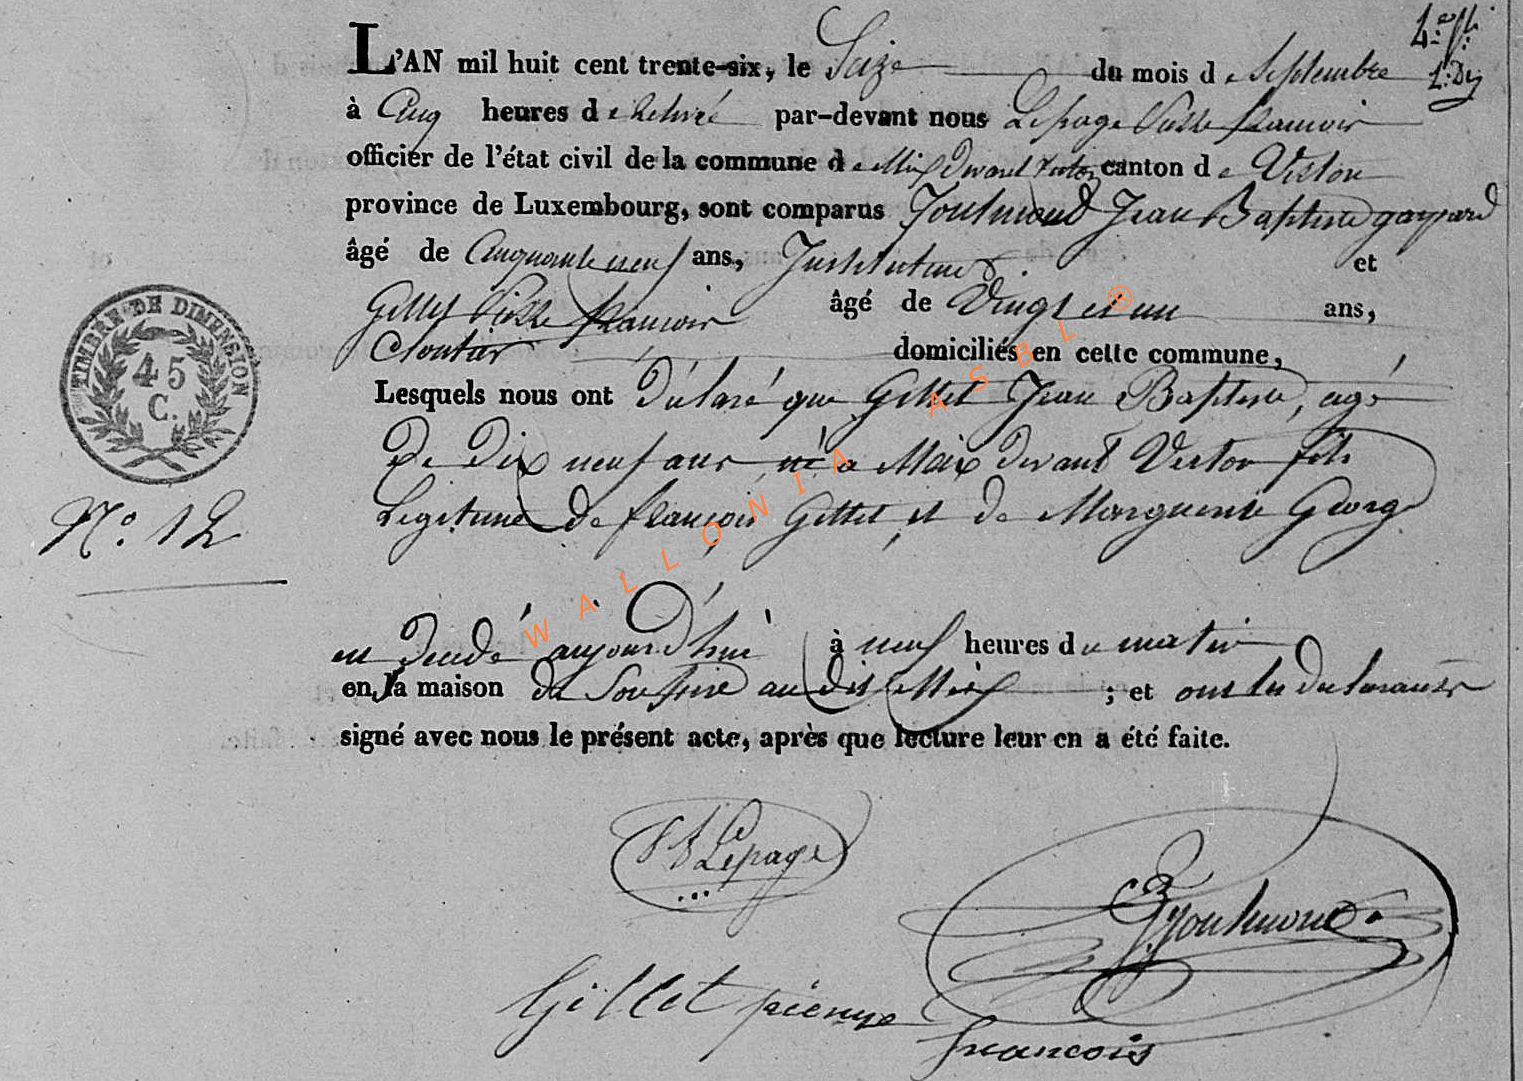 L'AN mil huit cent trente-six, le Seize du mois de Septembre
à Cinq heures de Relevé par-devant nous Lepage Pierre françois
officier de l'état civil de la commune de Meix devant virton canton de Virton
province de Luxembourg, sont comparus Joulmond Jean Baptiste gaspard
âgé de Cinquante neuf ans, Instituteur et
Gillet Pierre françois âgé de Vingt et un ans,
Cloutier domiciliés en cette commune,
Lesquels nous ont Déclaré que Gillet Jean Baptiste, agé
De Dix neuf ans né a Meix devant Virton fils
Legitime De françois Gillet et de Marguerite George
TIMBRE DE DIMENSION
45
C.
N.º 12
est Decedé aujourd'hui à neuf heures du matin
en la maison de au dit Meix ; et ont les declarants
signé avec nous le présent acte, après que lecture leur en a été faite.
Lepage
Joulmond
Gillet pierre
francois
WALLONIA ASBL ®